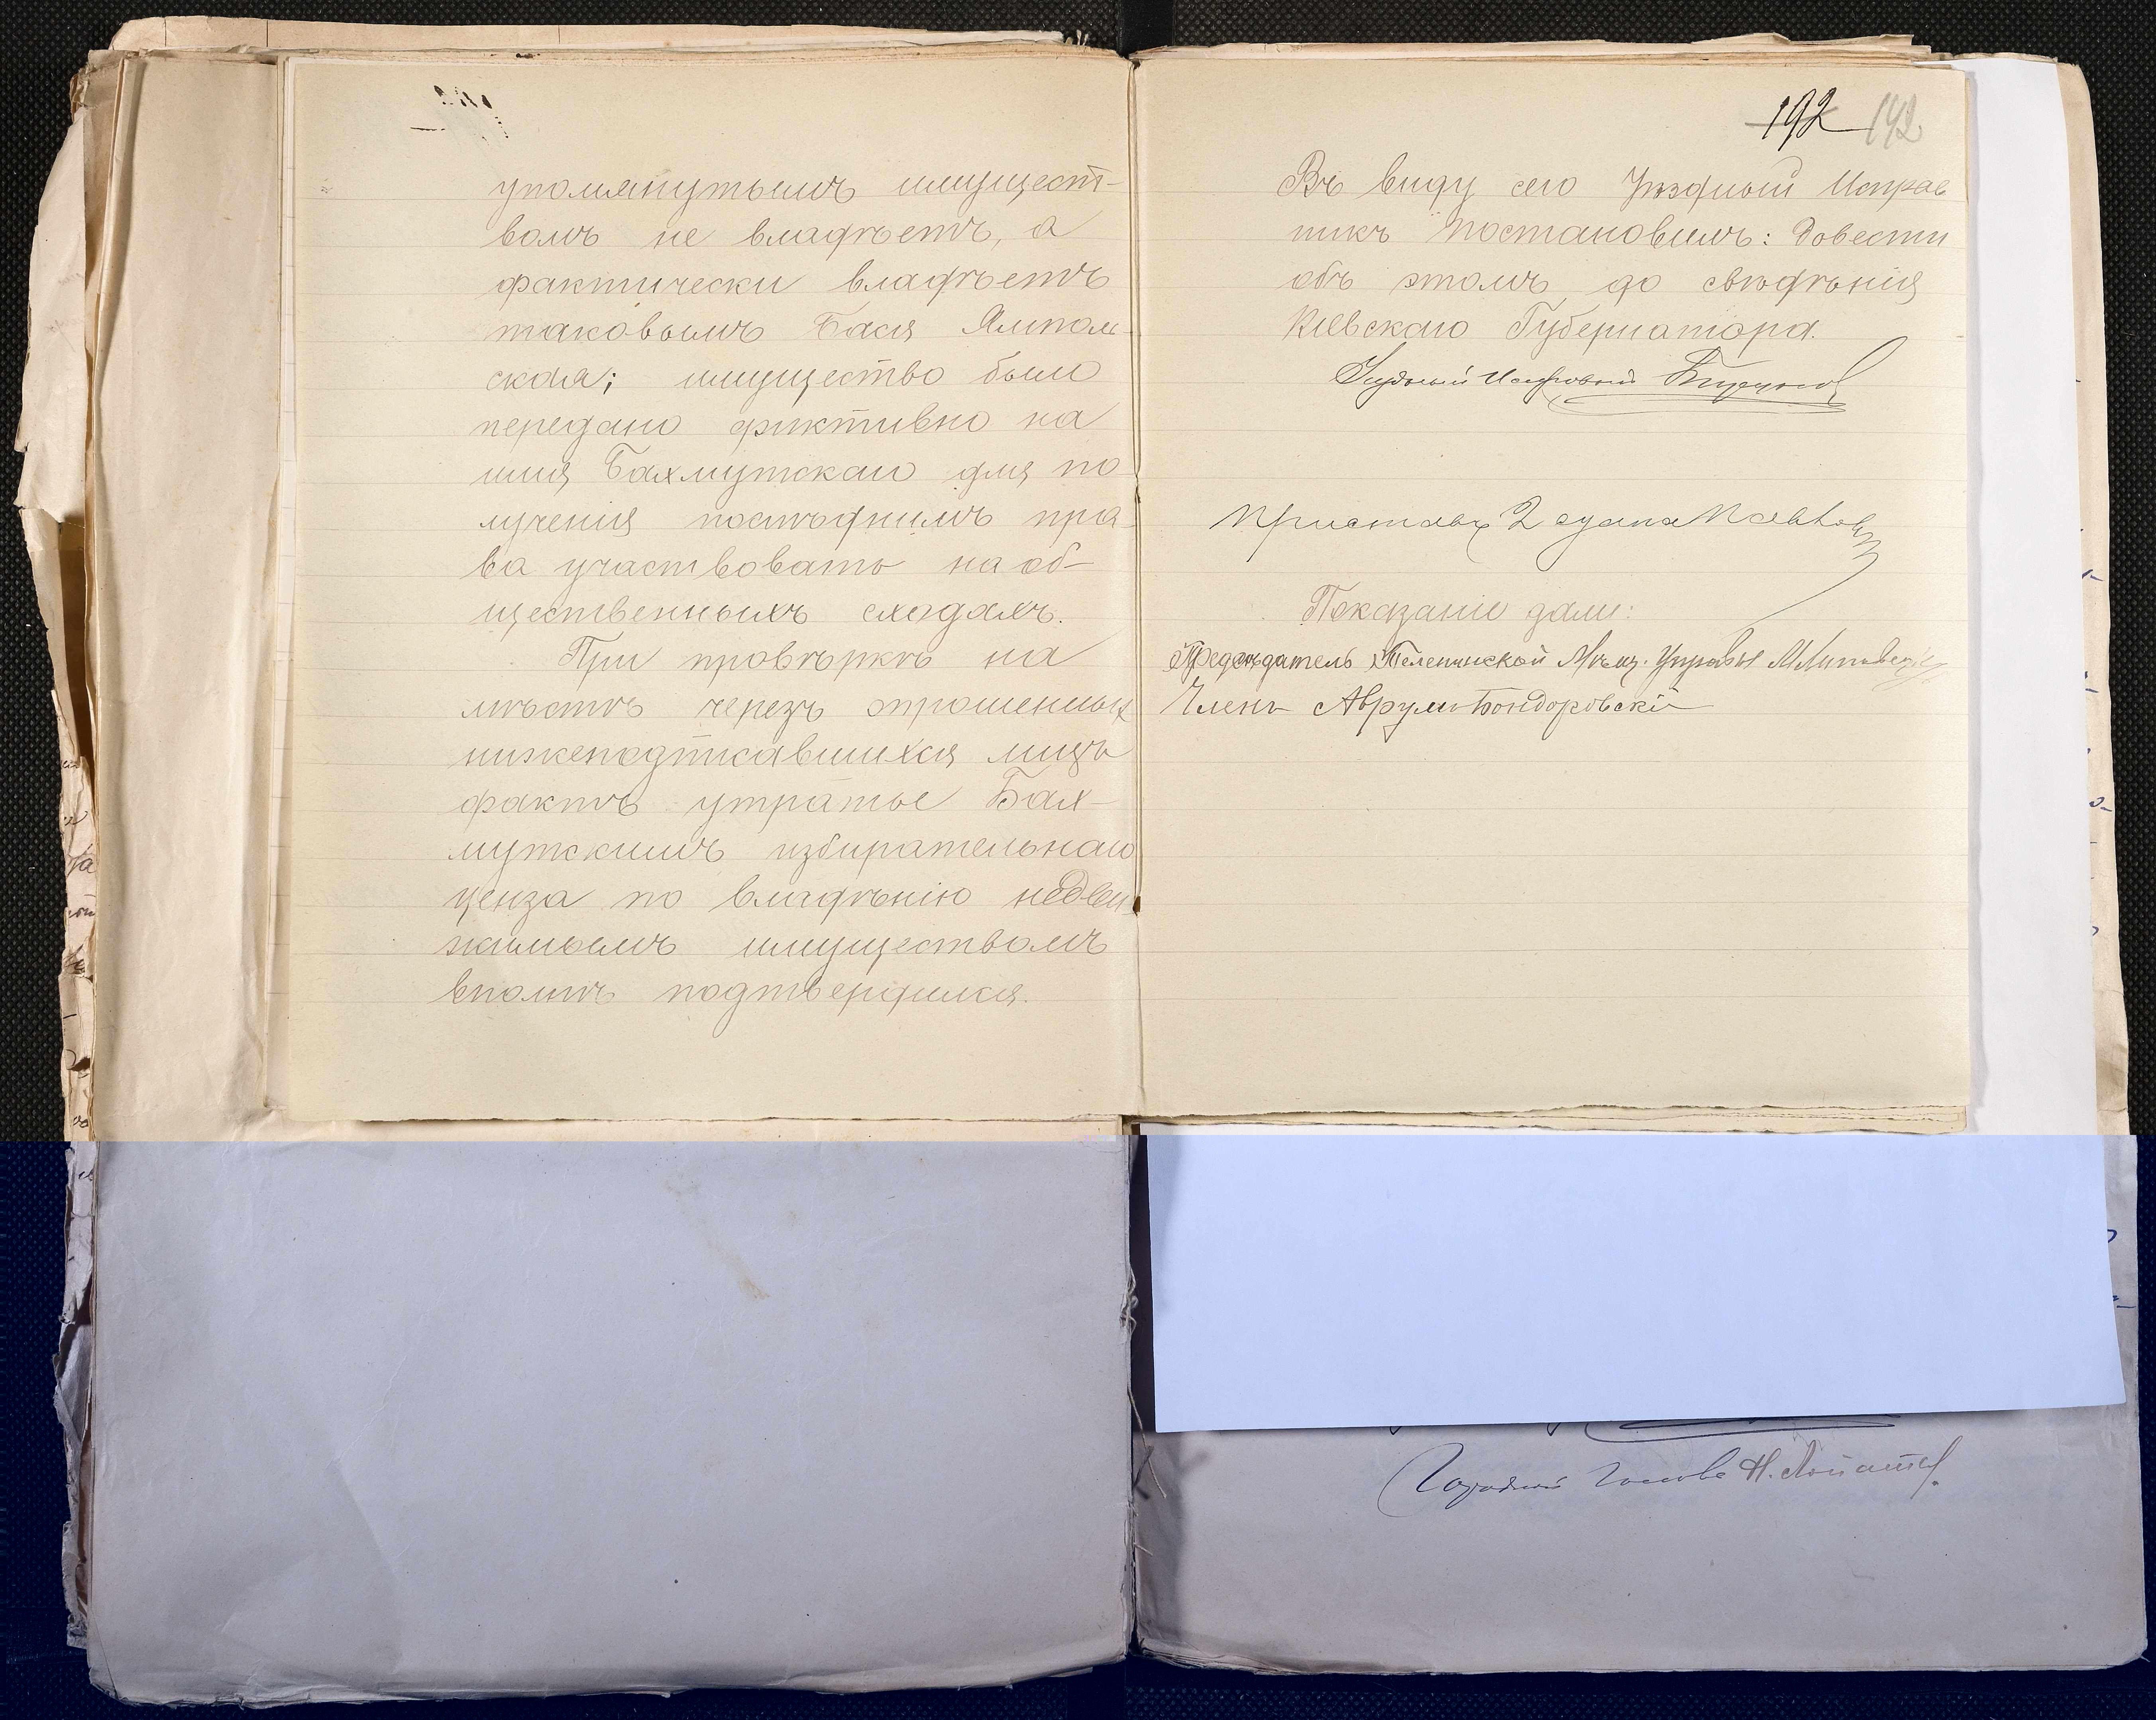 упомянутымъ имущест-
вомъ не владѣетъ, а
фактически владѣетъ
таковымъ Бася Ямполь-
ская; имущество было
передано фиктивно на
имя Бахмутскаго для по
лученія послѣднимъ пра-
ва участвовать на об-
щественныхъ сходахъ.
При провѣркѣ на
мѣстѣ черезъ опрошенныхъ
нижеподписавшихся лицъ
фактъ утраты Бах-
мутскимъ избирательнаго
ценза по владѣнію недви-
жимымъ имуществомъ
вполнѣ подтвердился.
192 142
Въ виду сего Уѣздный Исправ
никъ постановилъ: довести
объ этомъ до свѣдѣнія
Кіевскаго Губернатора.
Уѣздный Исправникъ
Приставъ 2 стана
Показаніе дали:
Предсѣдатель Мѣщ. Управы
Членъ Аврумъ Бондоровскій
Городской Голова Н.